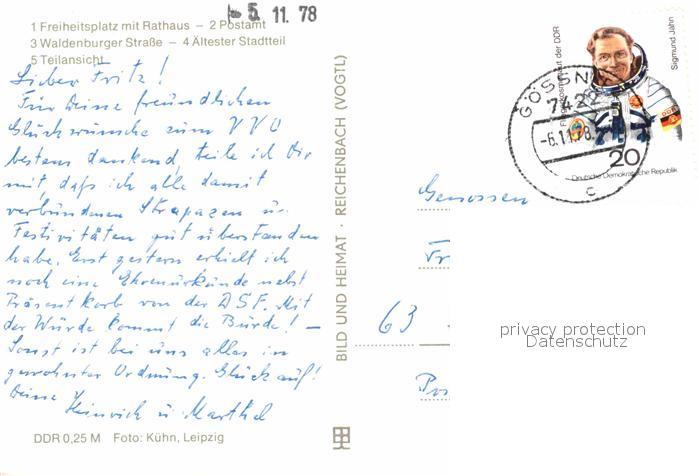 - 5. 11. 78
1 Freiheitsplatz mit Rathaus – 2 Postamt
3 Waldenburger Straße – 4 Ältester Stadtteil
5 Teilansicht
Lieber Fritz!
Für Deine freundlichen
Glückwünsche zum VVO
bestens dankend, teile ich Dir
mit, daß ich alle damit
verbundenen Strapazen u.
Festivitäten gut überstanden
habe. Erst gestern erhielt ich
noch eine Ehrenurkunde nebst
Präsentkorb von der DSF. Mit
der Würde kommt die Bürde! –
Sonst ist bei uns alles in
gewohnter Ordnung. Glück auf!
Deine
Heinrich u. Marthel
DDR 0,25 M Foto: Kühn, Leipzig
BILD UND HEIMAT · REICHENBACH (VOGTL)
der DDR
Sigmund Jähn
GÖSSN
742
-6.11.78
c
20
Deutsche Demokratische Republik
DDR
Genossen
Fr
63
Po
privacy protection
Datenschutz